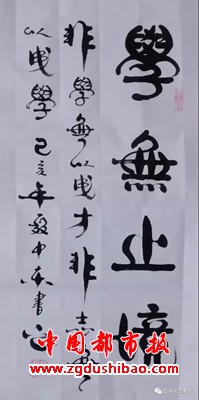 學無止境
非學無以成才非志無
以成學己亥年中書
中國都市報
www.zgdushibao.com